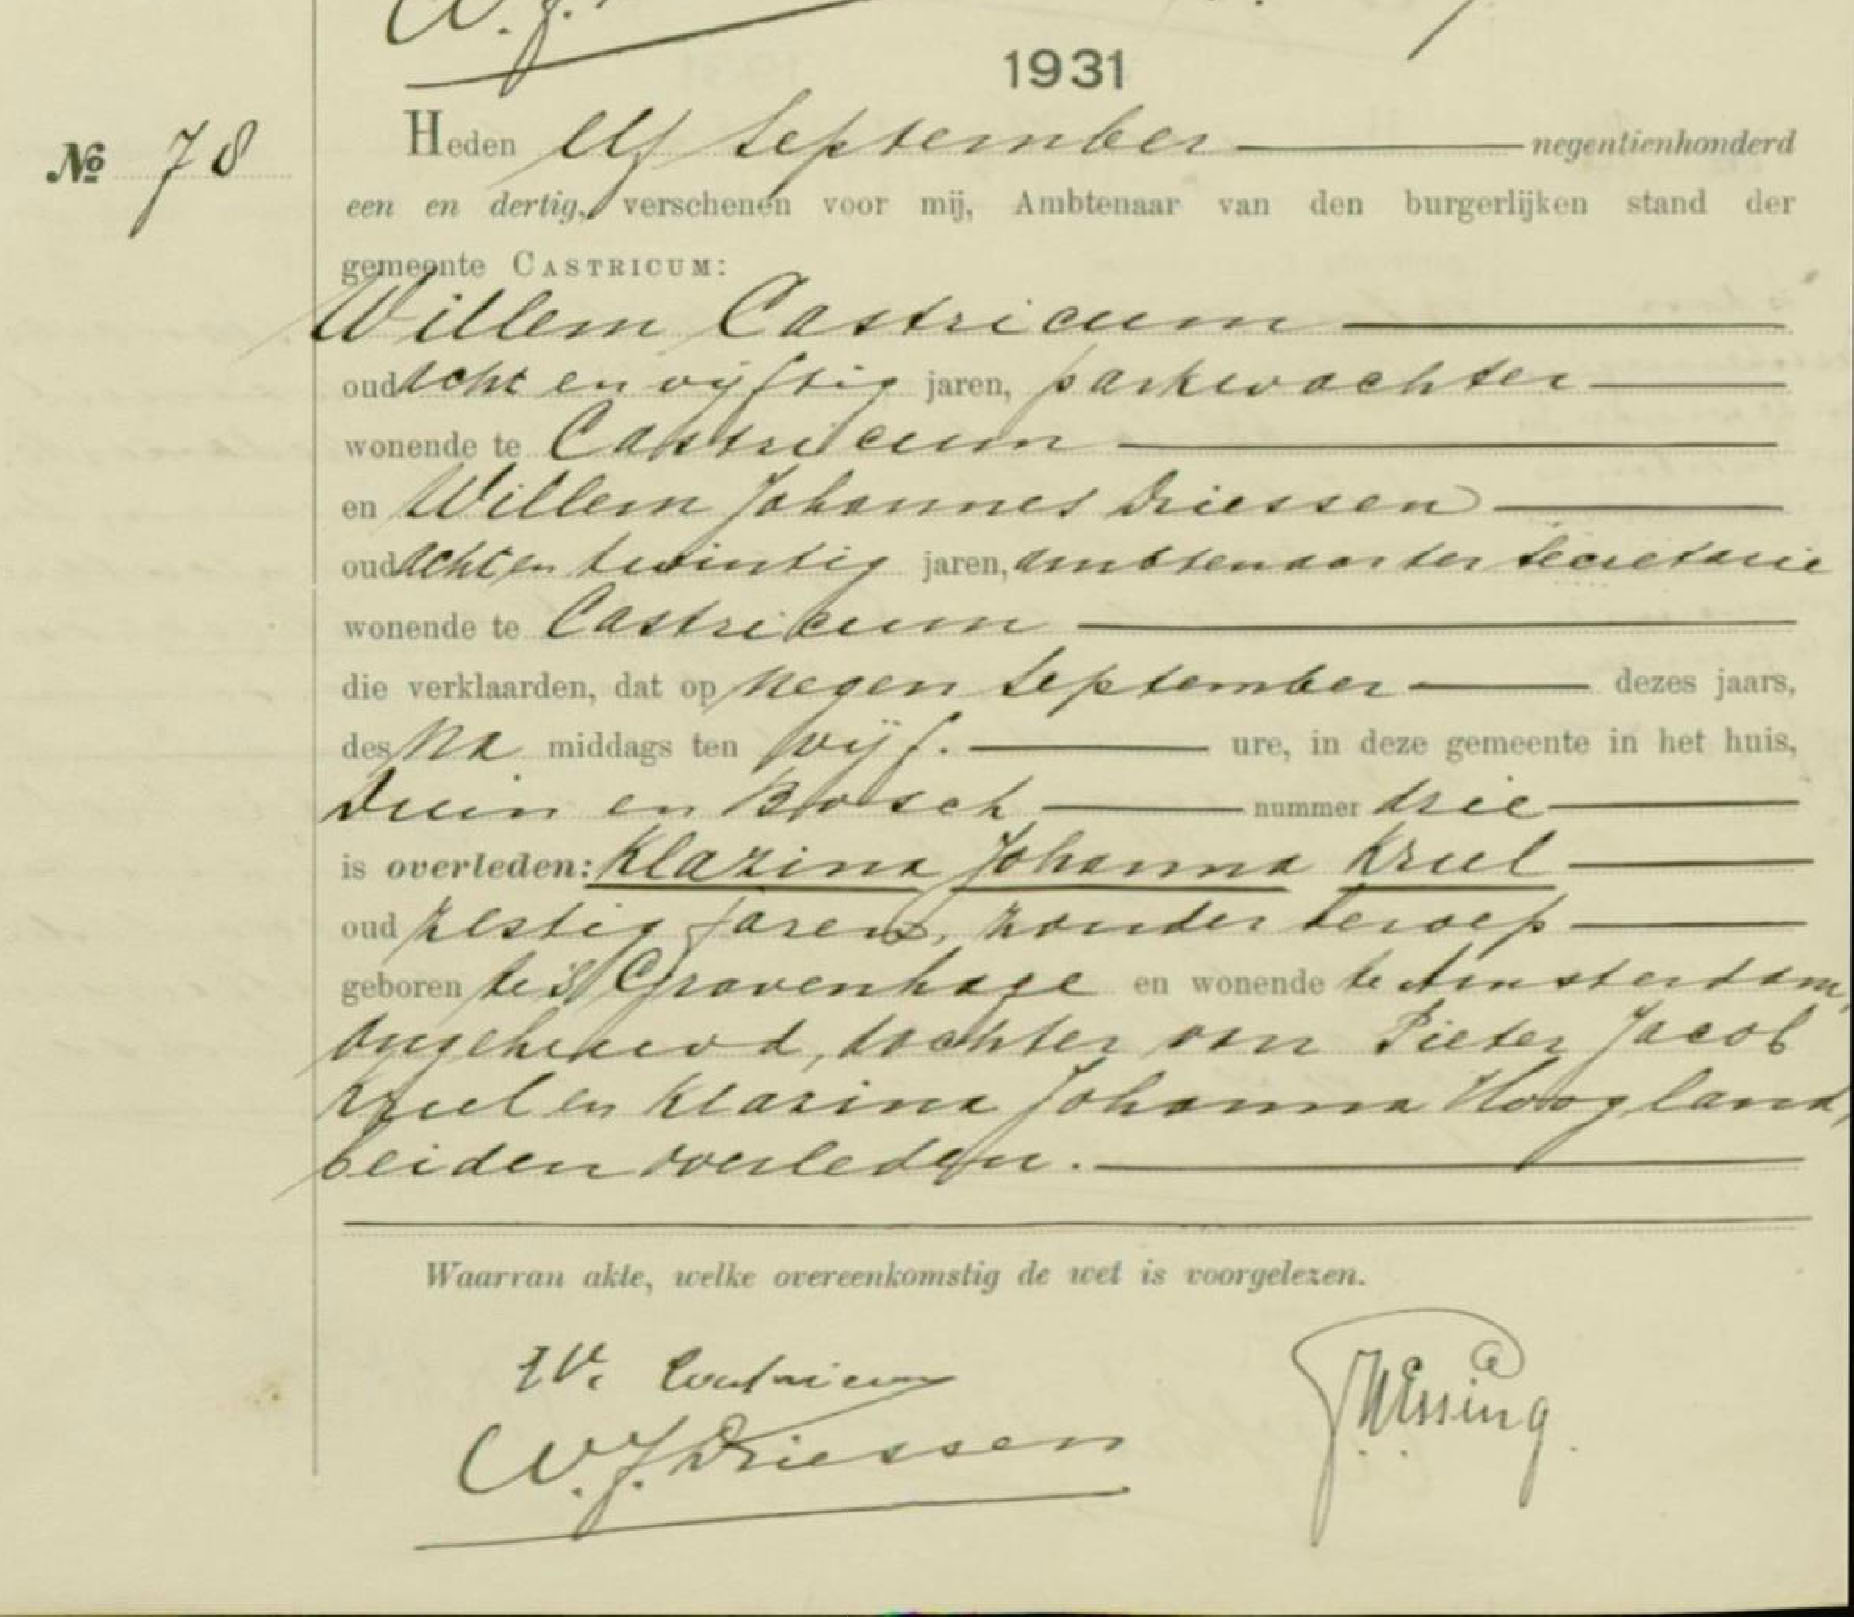 W. J.
1931
№ 78
Heden elf September negentienhonderd
een en dertig, verschenen voor mij, Ambtenaar van den burgerlijken stand der
gemeente CASTRICUM:
Willem Castricum
oud acht en vijftig jaren, parkwachter
wonende te Castricum
en Willem Johannes Driessen
oud acht en twintig jaren, ambtenaar ter secretarie
wonende te Castricum
die verklaarden, dat op negen September dezes jaars,
des na middags ten vijf. ure, in deze gemeente in het huis,
Duin en Bosch nummer drie
is overleden: Klazina Johanna Krul
oud zestig jaren, zonder beroep
geboren te 's Gravenhage en wonende te Amsterdam,
ongehuwd, dochter van Pieter Jacob
Krul en Klazina Johanna Hoogland,
beiden overleden.
Waarvan akte, welke overeenkomstig de wet is voorgelezen.
W. Castricum
W. J. Driessen
Wessing